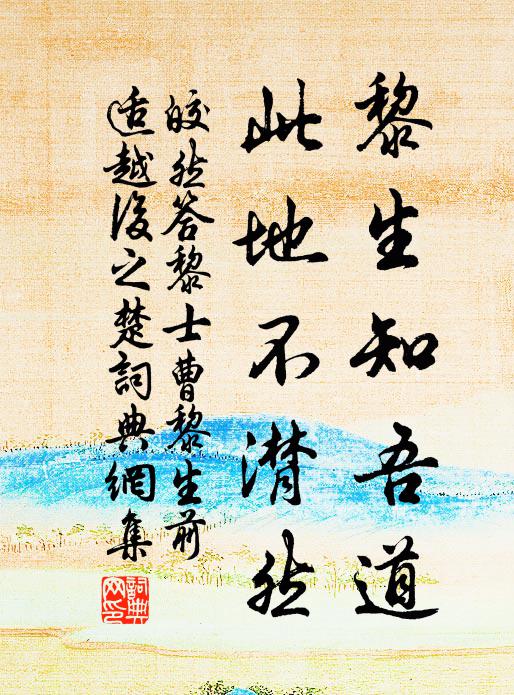 黎生知吾道
此地不潸然
皎然答黎士曹黎生前
适越後之楚詞典網集
詞典網印